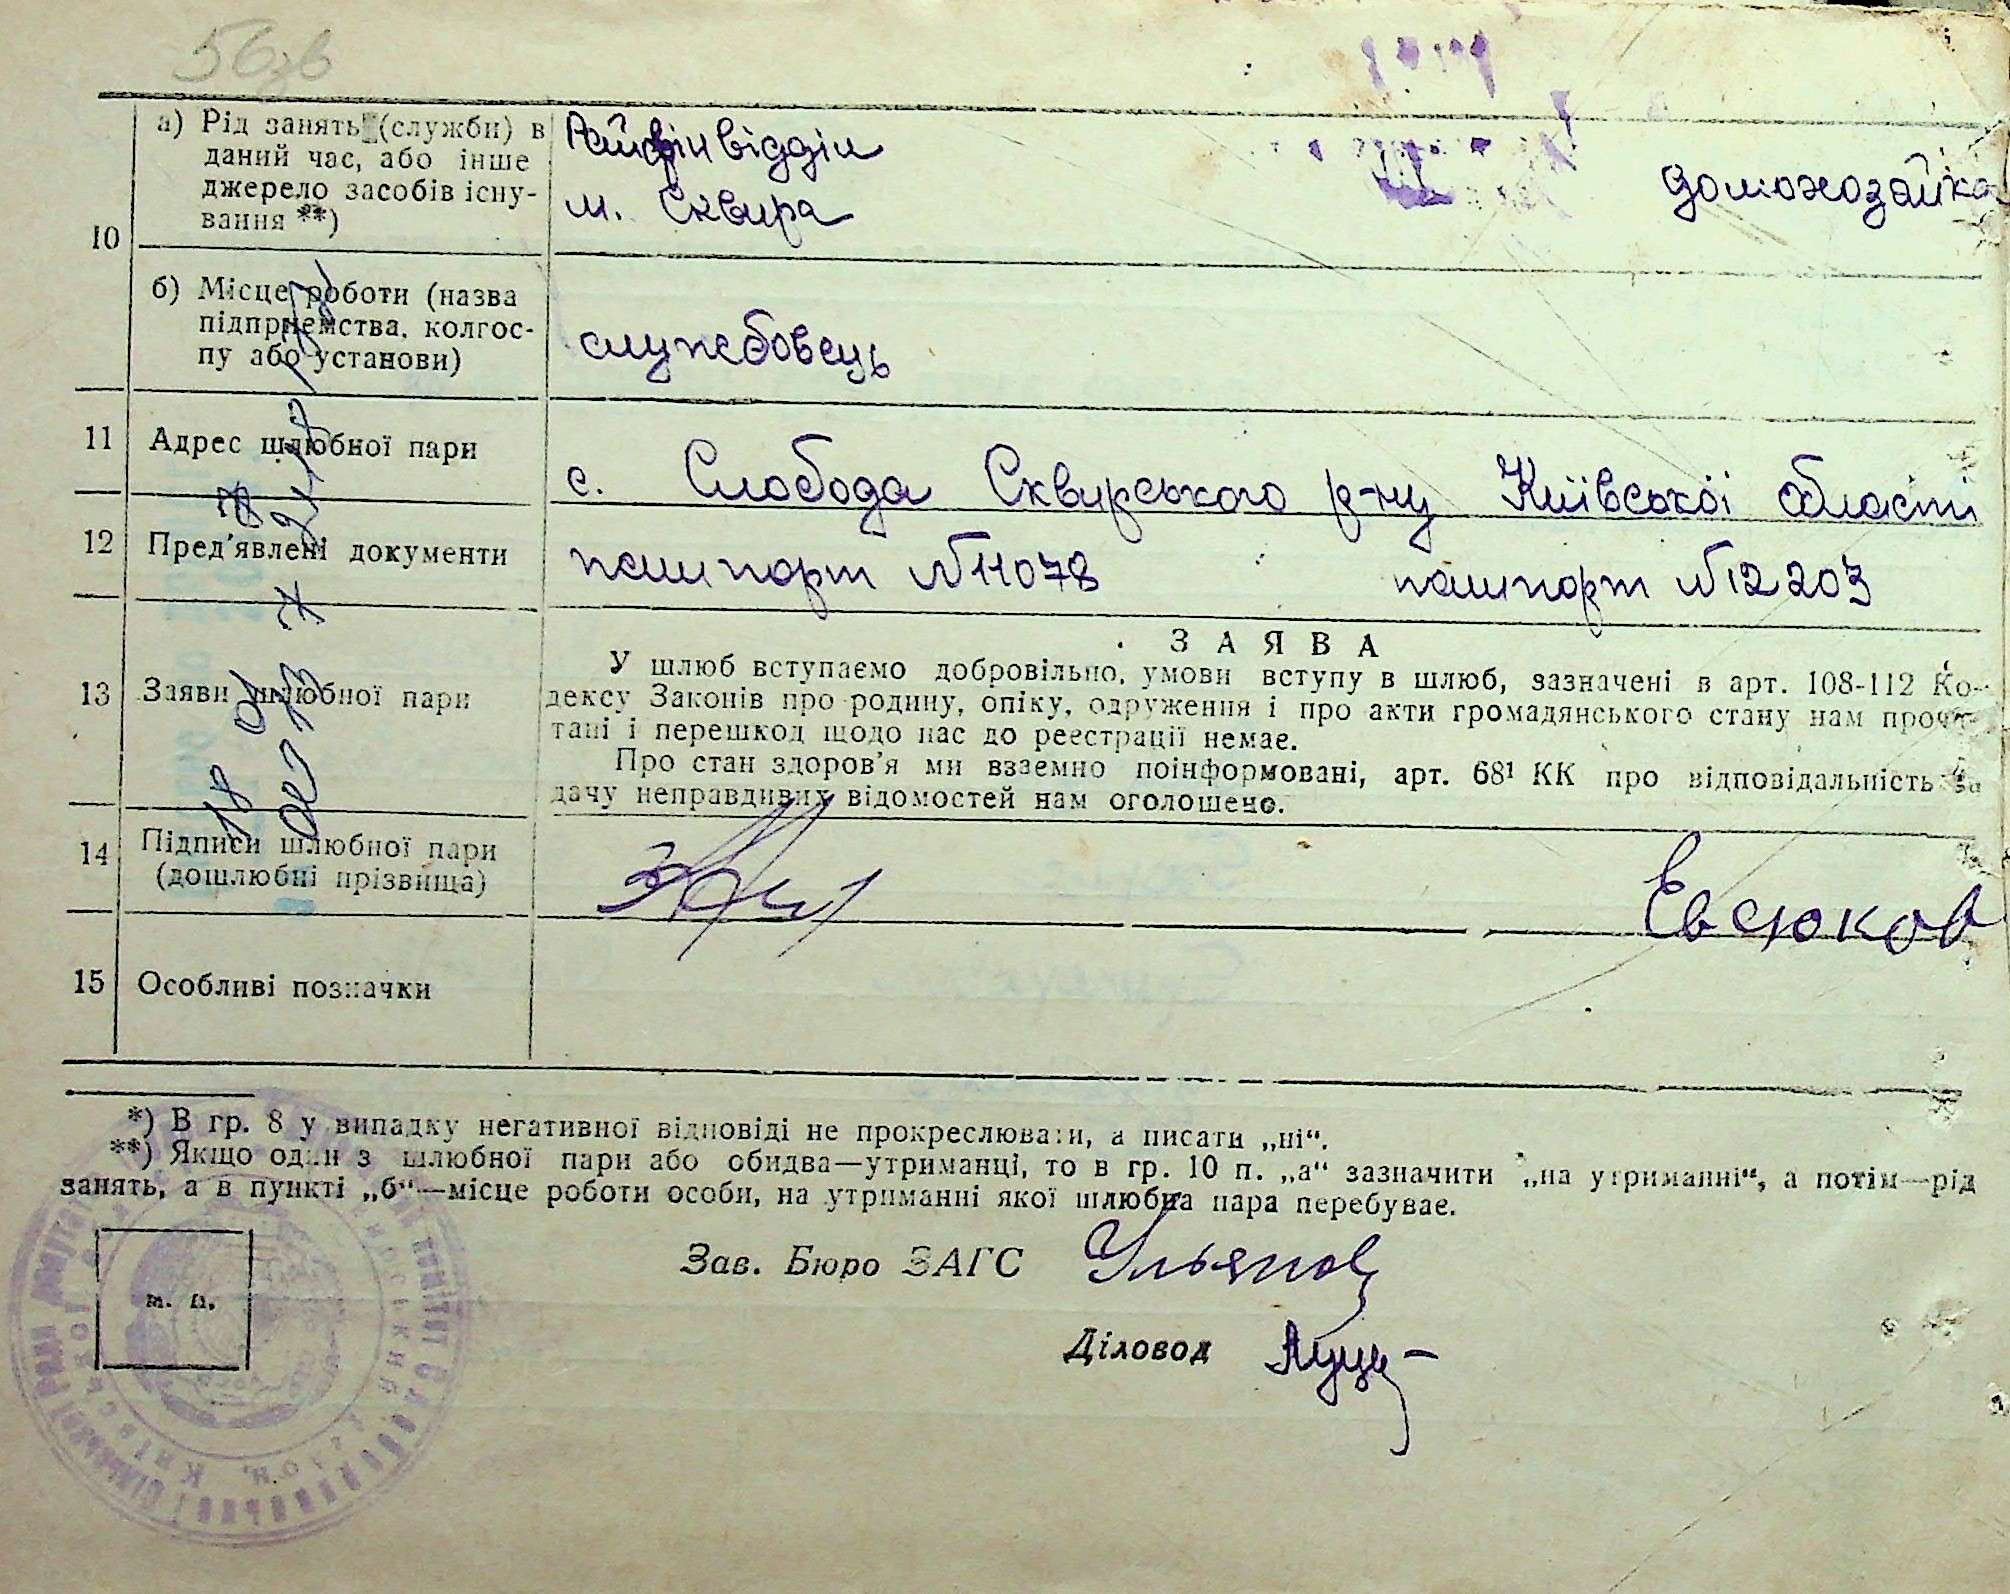 56зв
10
а) Рід занять (служби) в
даний час, або інше
джерело засобів існу-
вання **)
Райфінвідділ
м. Сквира
домохозайка
б) Місце роботи (назва
підприємства, колгос-
пу або установи)
службовець
11 Адрес шлюбної пари
с. Слобода Сквирського р-ну Київської області
12 Пред'явлені документи
пашпорт №11078 пашпорт №12203
13 Заяви шлюбної пари
ЗАЯВА
У шлюб вступаємо добровільно, умови вступу в шлюб, зазначені в арт. 108-112 Ко-
дексу Законів про родину, опіку, одруження і про акти громадянського стану нам прочи-
тані і перешкод щодо нас до реєстрації немає.
Про стан здоров'я ми взаємно поінформовані, арт. 68¹ КК про відповідальність за
дачу неправдивих відомостей нам оголошено.
14 Підписи шлюбної пари
(дошлюбні прізвища)
Евсюков
15 Особливі позначки
*) В гр. 8 у випадку негативної відповіді не прокреслювати, а писати „ні“.
**) Якщо один з шлюбної пари або обидва—утриманці, то в гр. 10 п. „а“ зазначити „на утриманні“, а потім—рід
занять, а в пункті „б“—місце роботи особи, на утриманні якої шлюбна пара перебуває.
м. п.
Зав. Бюро ЗАГС Ульянов
Діловод